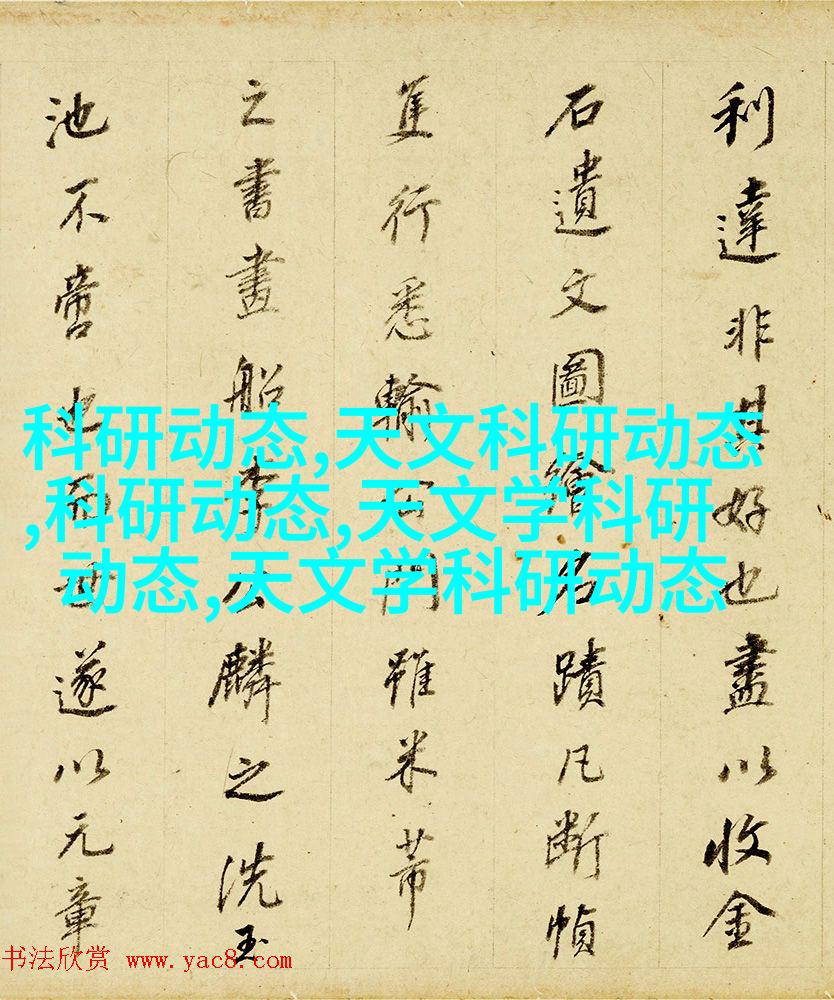 利達非其好也盡以收金
石遺文圖繪名蹟凡斷幀
隻行悉輸門雖米芾
之書畫船李公麟之洗玉
池不啻也而世遂以元章
科研动态,天文科研动态
,科研动态,天文学科研
动态,天文学科研动态
书法欣赏 www.yac8.com